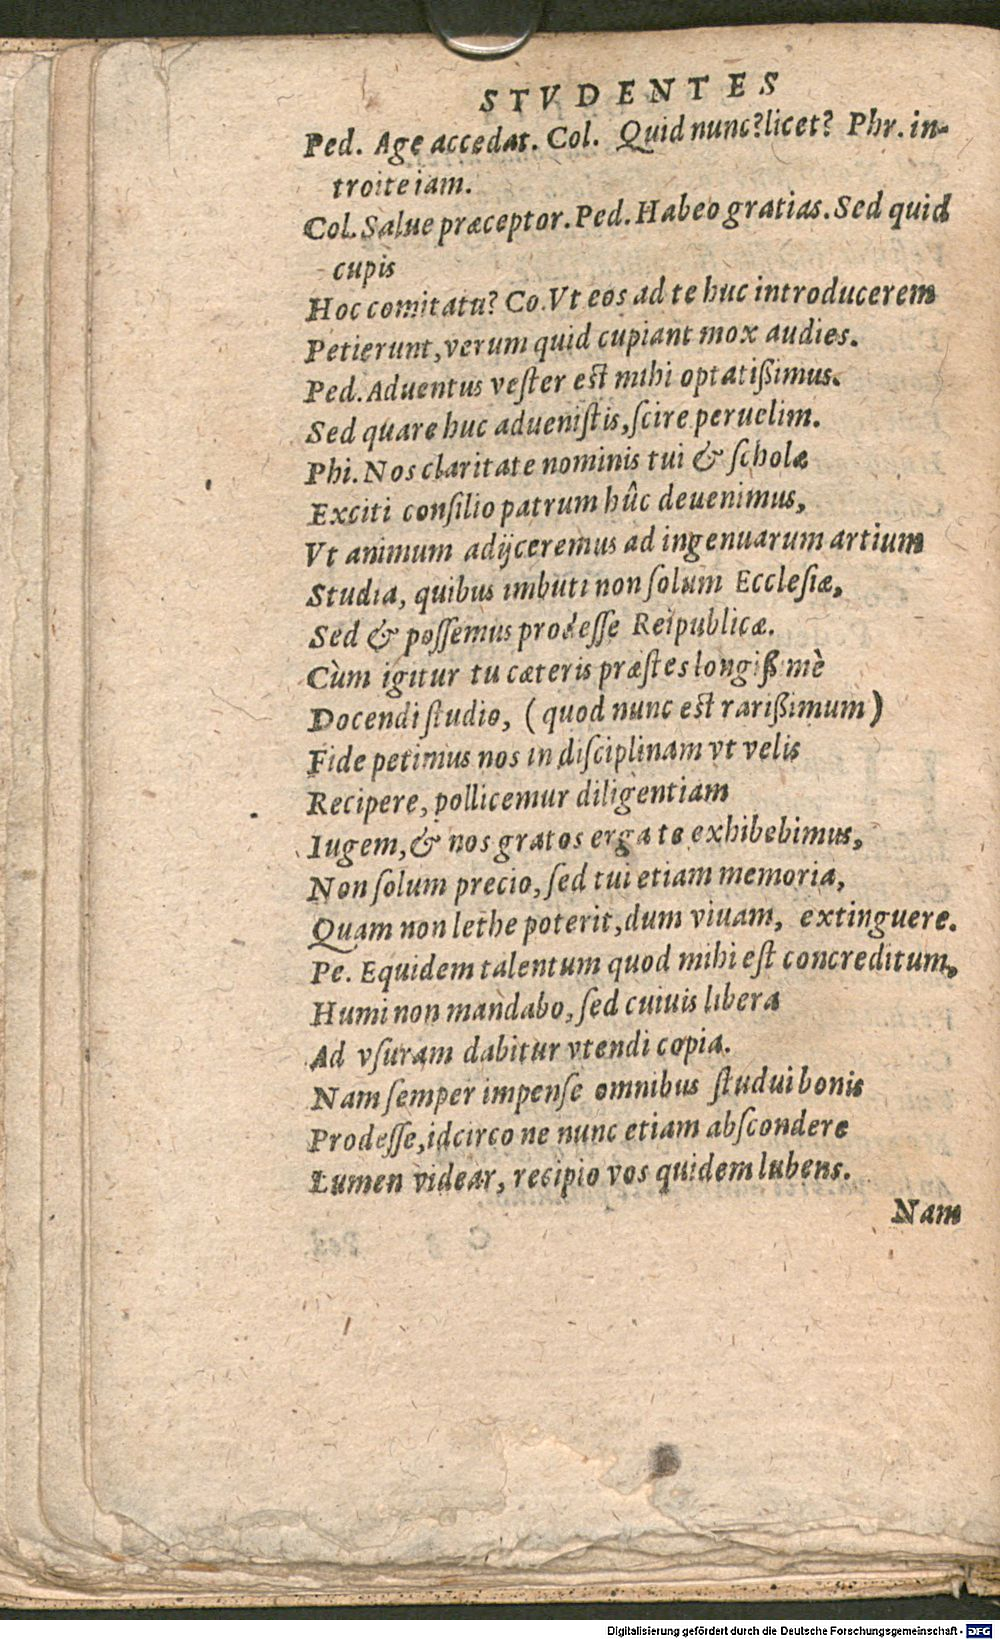 STVDENTES
Ped. Age accedat. Col. Quid nunc?licet? Phr. in-
troite iam.
Col. Salue præceptor. Ped. Habeo gratias. Sed quid
cupis
Hoc comitatu? Co. Vt eos ad te huc introducerem
Petierunt, verum quid cupiant mox audies.
Ped. Aduentus veſter eſt mihi optatißimus.
Sed quare huc adueniſtis, ſcire peruelim.
Phi. Nos claritate nominis tui & ſcholæ
Exciti conſilio patrum hûc deuenimus,
Vt animum adijceremus ad ingenuarum artium
Studia, quibus imbuti non ſolum Eccleſiæ,
Sed & poſſemus prodeſſe Reipublicæ.
Cùm igitur tu cæteris præſtes longiß mè
Docendi ſtudio, (quod nunc eſt rarißimum)
Fide petimus nos in diſciplinam vt velis
Recipere, pollicemur diligentiam
Iugem, & nos gratos erga te exhibebimus,
Non ſolum precio, ſed tui etiam memoria,
Quam non lethe poterit, dum viuam, extinguere.
Pe. Equidem talentum quod mihi eſt concreditum,
Humi non mandabo, ſed cuiuis libera
Ad vſuram dabitur vtendi copia.
Nam ſemper impenſe omnibus ſtudui bonis
Prodeſſe, idcirco ne nunc etiam abſcondere
Lumen videar, recipio vos quidem lubens.
Nam
Digitalisierung gefördert durch die Deutsche Forschungsgemeinschaft - DFG